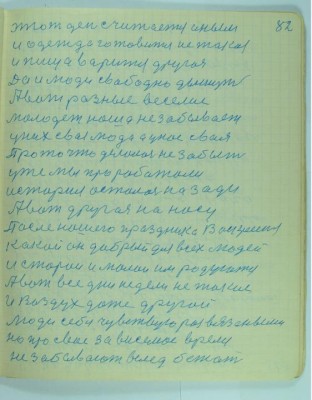 82
этот ден считается иным
и одежда готовится не такая
и пища варится другая
Да и люди свободно дышут
А вот разные веселие
молодеж наша не забывает
у них своя мода а у нас своя
Про то что делалоя не забыт
уже мы про работали
история осталоя на зади
А вот другая на носу
После нашего праздника
Какой он добрый для всех людей
и старои и малои им
А вот все дни недели не такие
и воздух даже другой
Люди себя чувствую развязаными
но про свое за висемое время
не забывают вслед бежат